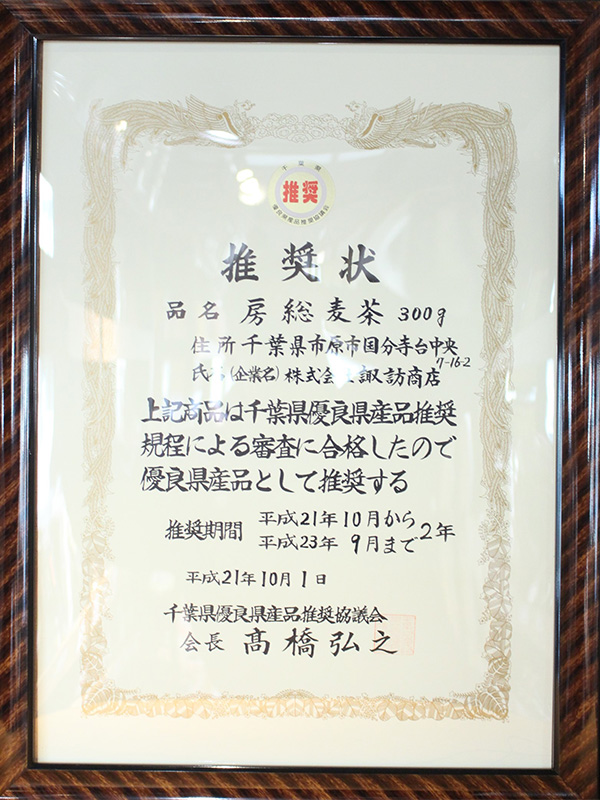 千葉県
推奨
優良県産品推奨協議会
推奨状
品名 房総麦茶 300g
住所 千葉県市原市国分寺台中央
7-16-2
氏名(企業名) 株式会社諏訪商店
上記商品は千葉県優良県産品推奨
規程による審査に合格したので
優良県産品として推奨する
推奨期間 平成21年10月から
平成23年 9月まで 2年
平成21年10月1日
千葉県優良県産品推奨協議会
会長 髙橋弘之